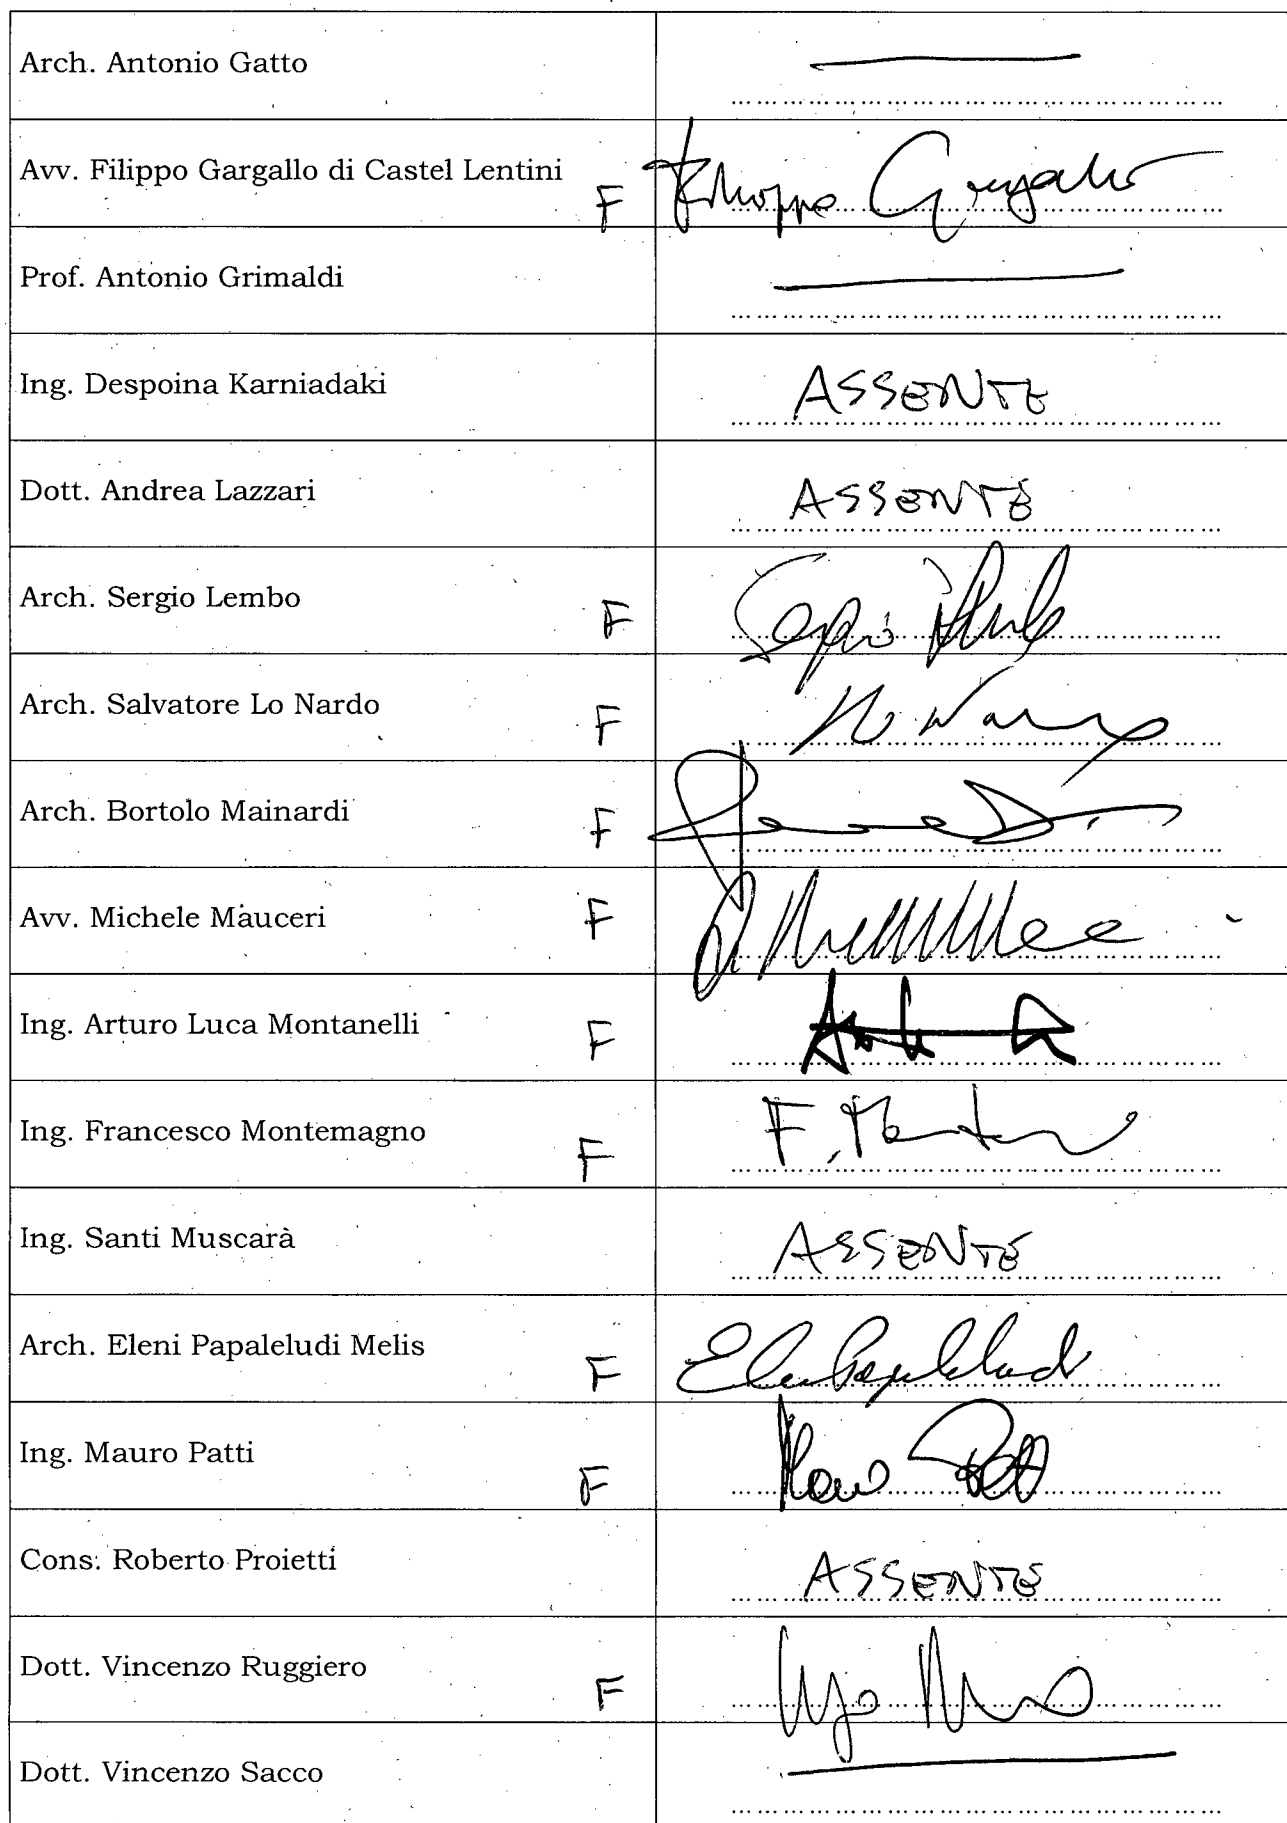 Arch. Antonio Gatto
Avv. Filippo Gargallo di Castel Lentini F Filippo Gargallo
Prof. Antonio Grimaldi
Ing. Despoina Karniadaki ASSENTE
Dott. Andrea Lazzari ASSENTE
Arch. Sergio Lembo F Sergio
Arch. Salvatore Lo Nardo F
Arch. Bortolo Mainardi F
Avv. Michele Mauceri F
Ing. Arturo Luca Montanelli F
Ing. Francesco Montemagno F F.
Ing. Santi Muscarà ASSENTE
Arch. Eleni Papaleludi Melis F
Ing. Mauro Patti F
Cons. Roberto Proietti ASSENTE
Dott. Vincenzo Ruggiero F
Dott. Vincenzo Sacco